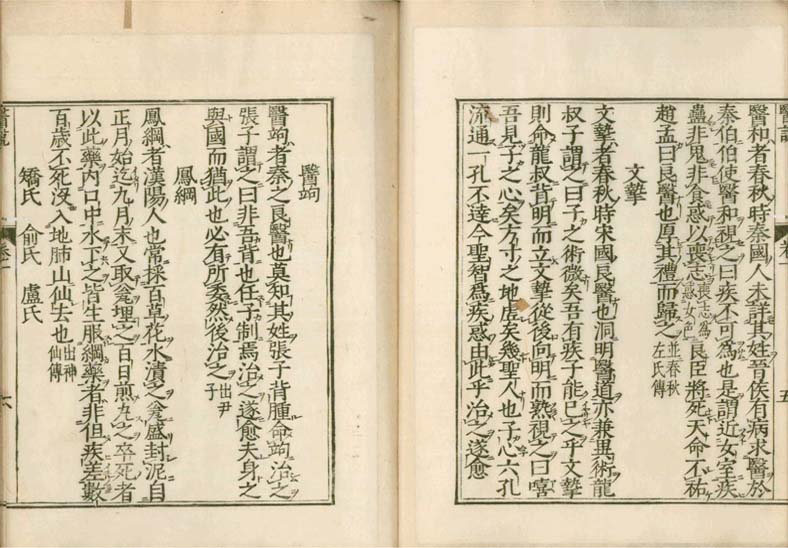 醫說
卷一
五
醫和者春秋時秦國人未詳其姓晉侯有病求醫於
秦伯伯使醫和視之曰疾不可為也是謂近女室疾
蠱非鬼非食惑以喪志喪志為惑女色良臣將死天命不祐
趙孟曰良醫也厚其禮而歸之並春秋左氏傳
文摯
文摯者春秋時宋國良醫也洞明醫道亦兼異術龍
叔子謂之曰子之術微矣吾有疾子能已之乎文摯
則命龍叔背明而立文摯從後向明而熟視之曰嘻
吾見子之心矣方寸之地虛矣幾聖人也子心六孔
流通一孔不達今聖智為疾惑由此乎治之遂愈
醫竘
醫竘者秦之良醫也莫知其姓張子背腫命竘治之
張子謂之曰非吾背也任子制焉治之遂愈夫身之
與國而猶此也必有所委然後治之出尹子
鳳綱
鳳綱者漢陽人也常採百草花水漬之瓮盛封泥自
正月始迄九月末又取瓮埋之百日煎丸之卒死者
以此藥內口中水下之皆生服綱藥者非但疾差數
百歲不死沒入地肺山仙去也出神仙傳
矯氏 俞氏 盧氏
醫說
卷一
六